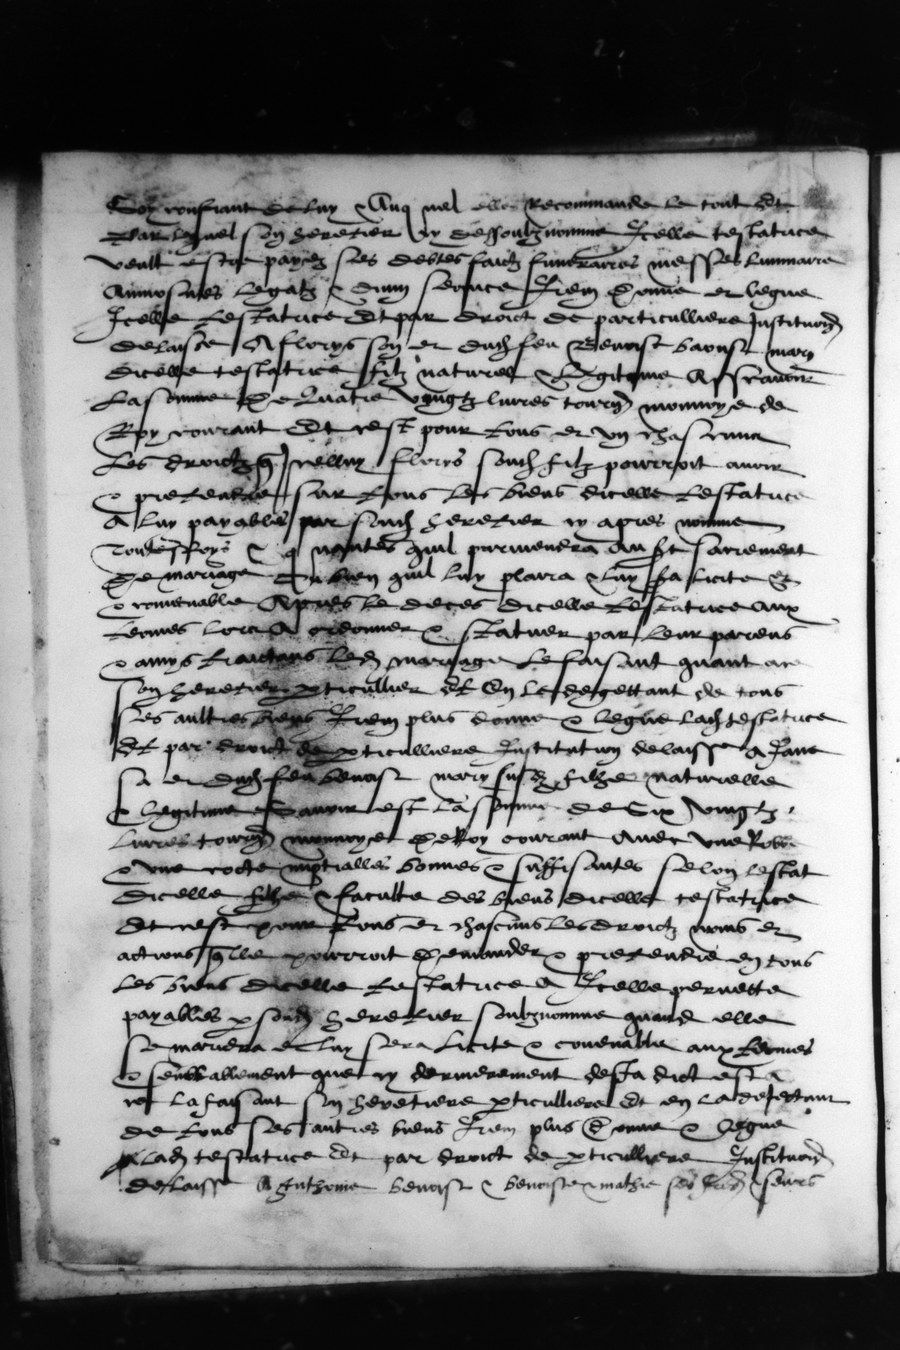 Soy confiant de luy Auquel elle Recommande le tout Et
Par lequel son heretier cy dessoubz nomme Icelle testatrice
veult estre payez ses debtes faictz funeraires messes luminaire
Aumosnes legatz & divin service Item donne et legue
Icelle testatrice Et par droict de particulliere Institution
delaisse A florys son et dud feu Benoist mary
dicelle testatrice filz naturel & legitime Assavoir
La somme De Quatre vingtz livres tourn monnoye de
Roy courant Et cest pour tous et ung chascung
Les droictz q Icelluy florys sond filz pourroit avoir
& pretendre sur tous les biens dicelle testatrice
A luy payables par sond heretier cy apres nomme
Toutesfoys & quantes quil parviendra au st sacrement
De mariage Ou bien quil luy plaira & luy sera licite &
& convenable Apres le deces dicelle testatrice aux
termes lors A ordonner & statuer par leur parens
& amys traictans led mariage Le faisant quant a ce
son heretier particullier Et En le degettant de tous
ses aultres biens Item plus donne & legue lad testatrice
Et par droict de particulliere Institution delaisse a
sa et dud feu benoist mary susd filhe naturelle
& legitime Scavoir est La somme de Six vingtz
Livres tourn monnoye De Roy courant Avec une Robe
& une cocte nuptialles bonnes & suffisantes selon lestat
dicelle filhe & faculte des biens dicelle testatrice
Et cest pour tous et chascuns les droictz noms et
actions qlle pourroit Demander & pretendre en tous
les biens dicelle testatrice a Icelle pernette
payables p sond heretier soubznomme quand elle
se mariera et luy sera Licite & convenable aux termes
& semblablement que cy dernierement desja dict est A
ce La faisant son heretiere particulliere Et en La dejectant
de tous ses autres biens Item plus Donne & legue
lad testatrice Et par droict de particulliere Institution
delaisse A benoist & benoiste & mathie ses